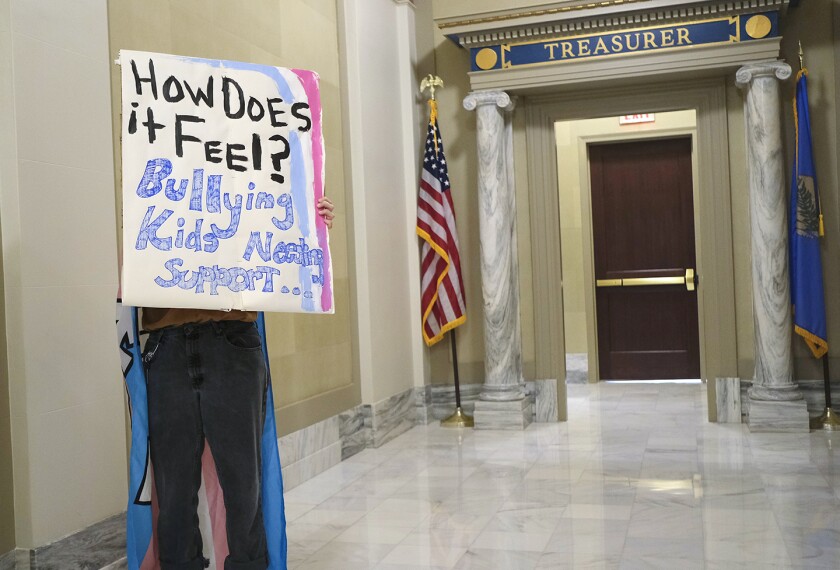 How Does
it Feel?
Bullying
Kids Needing
Support...?
TREASURER
EXIT